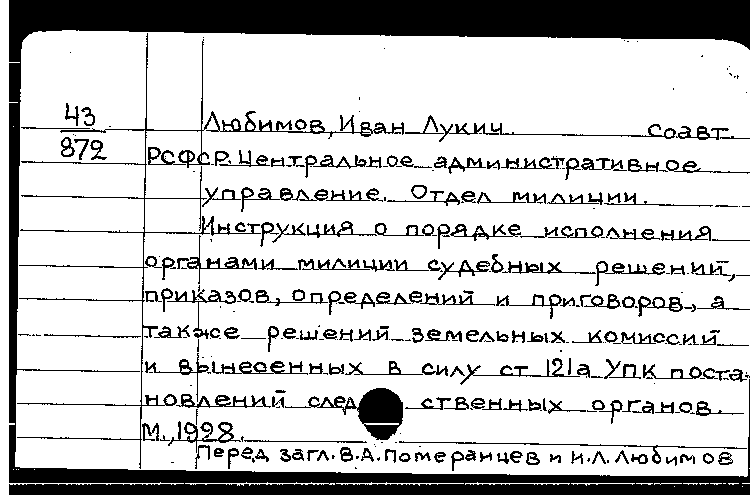 43
872
Любимов, Иван Лукич соавт.
РСФСР. Центральное административное
управление. Отдел милиции.
Инструкция о порядке исполнения
органами милиции судебных решений,
приказов, определений и приговоров, а
также решений земельных комиссий
и вынесенных в силу ст 121а УПК поста-
новлений след ственных органов.
М., 1928.
Перед загл. В.А. Померанцев и И.Л. Любимов